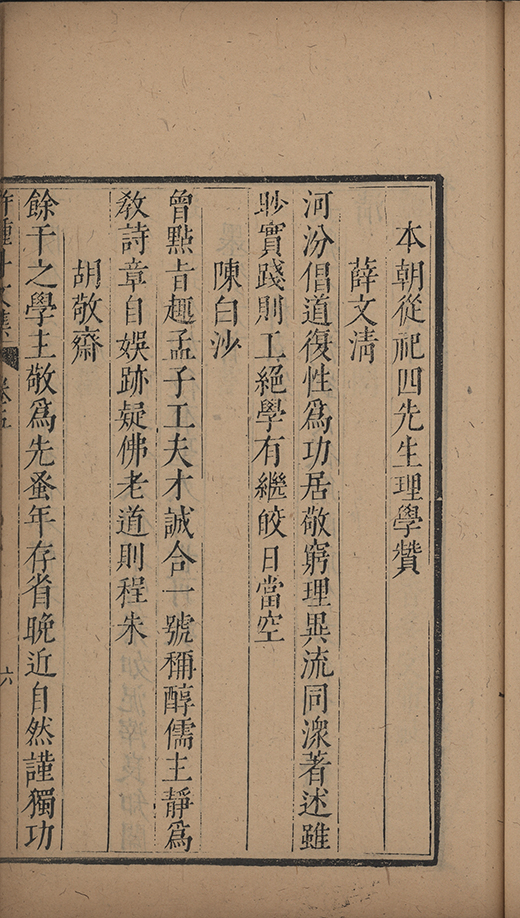 本朝從祀四先生理學贊
薛文清
河汾倡道復性為功居敬窮理異流同潨著述雖
眇實踐則工絕學有繼皎日當空
陳白沙
曾點旨趣孟子工夫才誠合一號稱醇儒主靜為
教詩章自娛跡疑佛老道則程朱
胡敬齋
餘干之學主敬為先蚤年存省晚近自然謹獨功
卷五
六